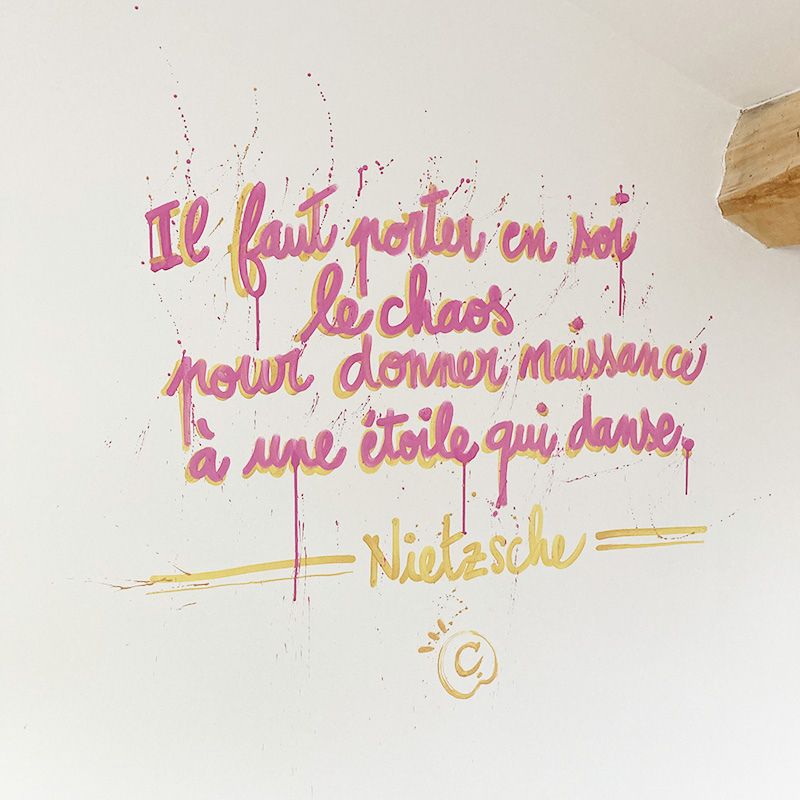 Il faut porter en soi
le chaos
pour donner naissance
à une étoile qui danse.
Nietzsche
C.